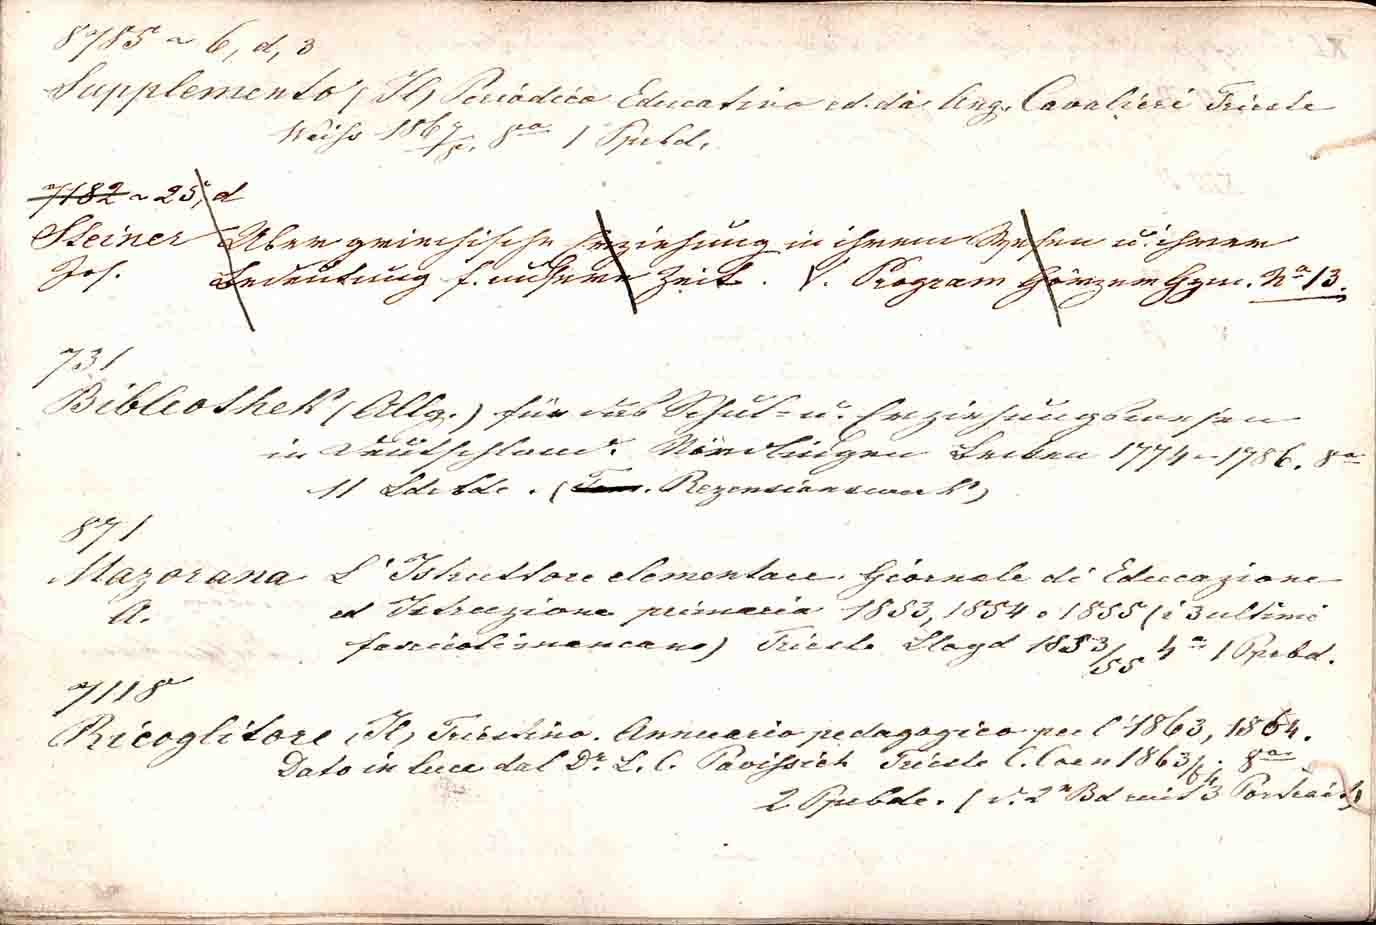 8785 ~ 6, d, 3
Supplemento (Il) Periodico Educativo ed. da Ang. Cavalieri Trieste
Weiss 1867/8. 8° 1 Ppebd.
7182 ~ 25, d
Steiner Über griechische Erziehung in ihrem Wesen u. ihrer
Jos. Bedeutung f. unsere Zeit. V. Program Görzer Gym. No 13.
731
Bibliothek (Allg.) für das Schul- u. Erziehungswesen
in Deutschland. Nördlingen Becken 1774–1786. 8°
11 Ldebde. (Rezensionswerk)
871
Mazorana L'Istruttore elementare. Giornale di Educazione
A. ed Istruzione primaria 1853, 1854 e 1855 (i 3 ultimi
fascicoli mancano) Trieste Lloyd 1853/55 4° 1 Ppebd.
7118
Ricoglitore (Il) Triestino. Annuario pedagogico per l' 1863, 1864.
Dato in luce dal Dr. L. C. Pavissich Trieste C. Coen 1863/64. 8°
2 Ppebde. (d. 2r Bd mit 3 Portraits)